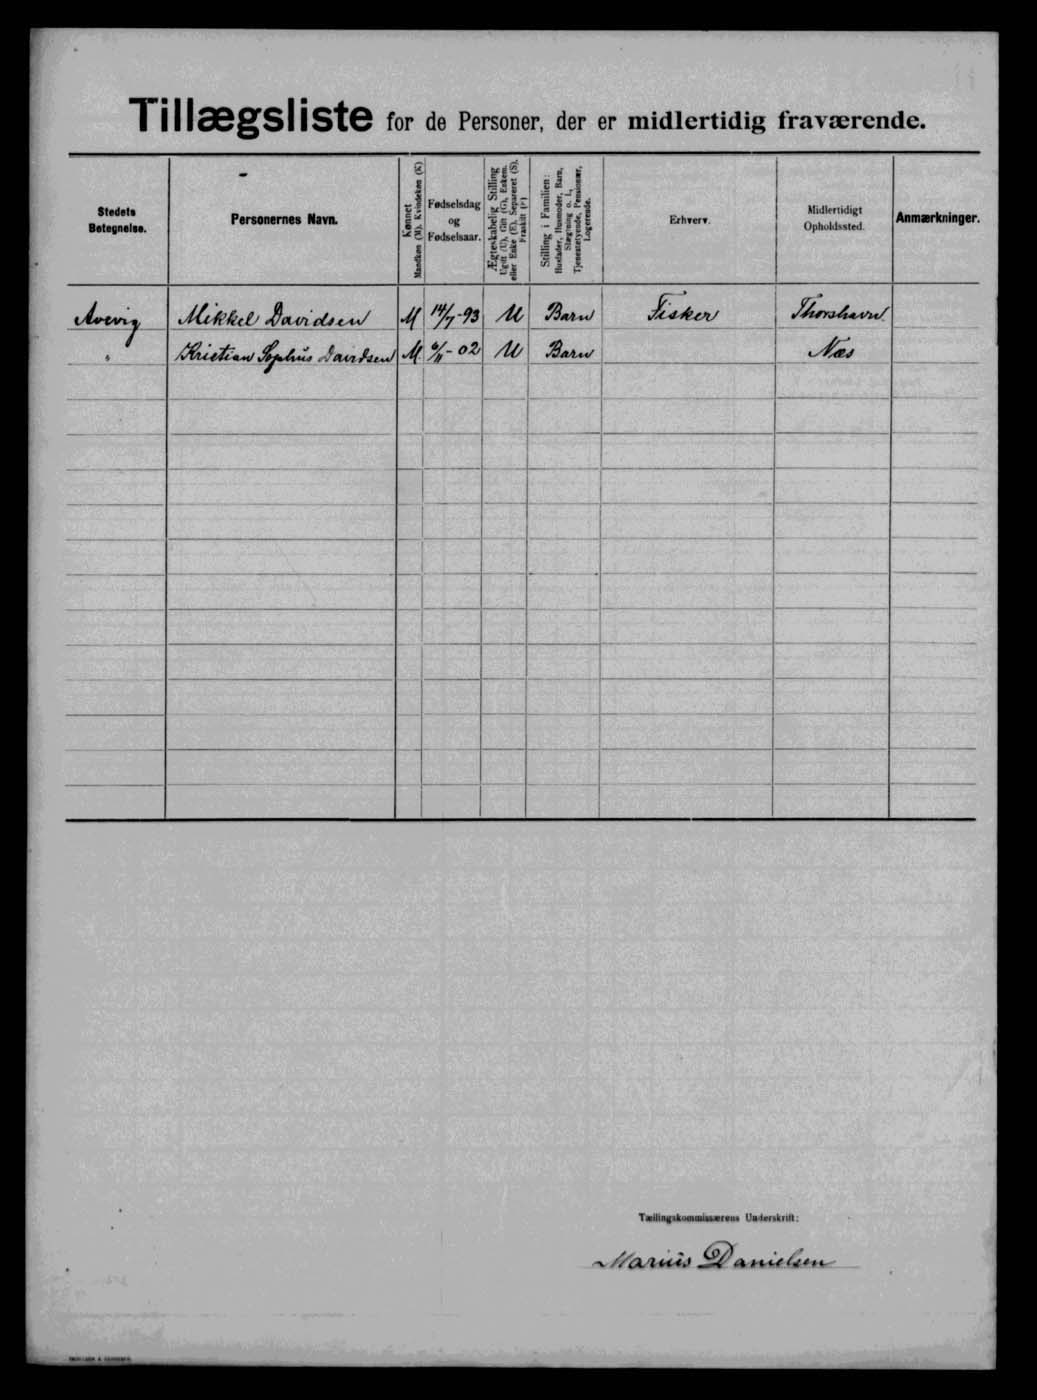 Tillægsliste for de Personer, der er midlertidig fraværende.
Stedets Betegnelse.
Personernes Navn.
Kønnet
Mandkøn (M), Kvindekøn (K)
Fødselsdag
og
Fødselsaar.
Ægteskabelig Stilling
Ugift (U), Gift (G), Enkem.
eller Enke (E), Separeret (S),
Fraskilt (F)
Stilling i Familien:
Husfader, Husmoder, Barn,
Slægtning o. l.,
Tjenestetyende, Pensionær,
Logerende.
Erhverv.
Midlertidigt
Opholdssted.
Anmærkninger.
Avevig Mikkel Davidsen M 14/7-93 U Barn Fisker Thorshavn.
" Kristian Sophus Davidsen M. 6/11-02 U Barn Næs
Tællingskommissærens Underskrift:
Marius Danielsen